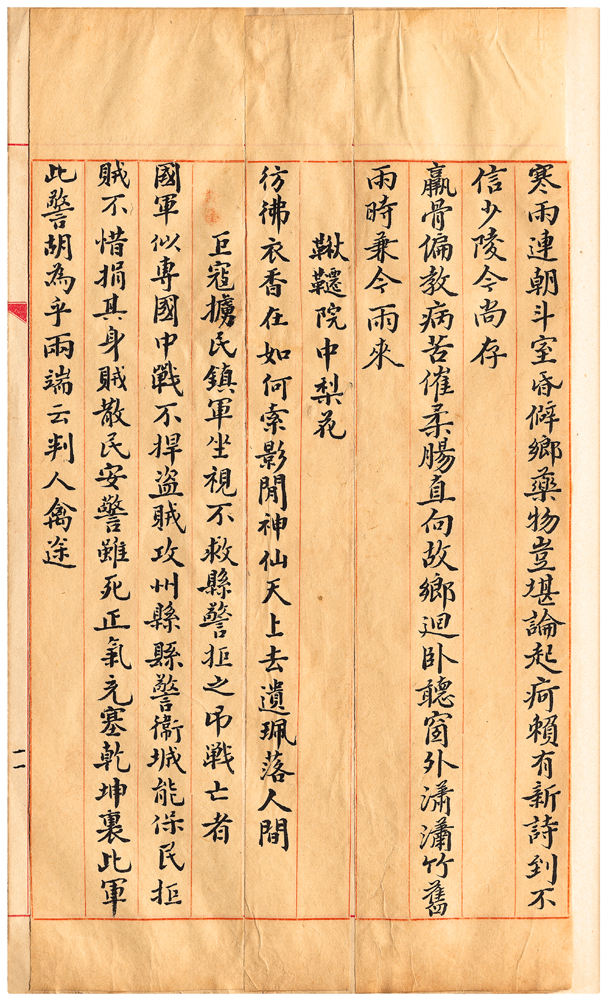 寒雨連朝斗室昏僻鄉藥物豈堪論起疴賴有新詩到不
信少陵今尚存
羸骨偏教病苦催柔腸直向故鄉迴臥聽窗外瀟瀟竹舊
雨時兼今雨來
鞦韆院中梨花
彷彿衣香在如何索影閒神仙天上去遺珮落人間
巨寇擄民鎮軍坐視不救縣警拒之弔戰亡者
國軍似專國中戰不捍盜賊攻州縣縣警衛城能保民拒
賊不惜捐其身賊散民安警雖死正氣充塞乾坤裏此軍
此警胡為乎兩端云判人禽途
一一